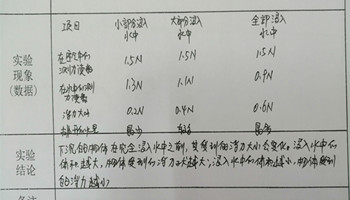 项目 小部分浸入水中 大部分浸入水中 全部浸入水中
实验现象(数据)
在空气中的测力计读数 1.5N 1.5N 1.5N
在水中的测力计读数 1.3N 1.1N 0.9N
浮力大小 0.2N 0.4N 0.6N
实验结论
下沉的物体在完全浸入水中之前,其受到的浮力大小会变化。浸入水中的
体积越大,物体受到的浮力就越大;浸入水中的体积越小,物体受到
的浮力越小
备注